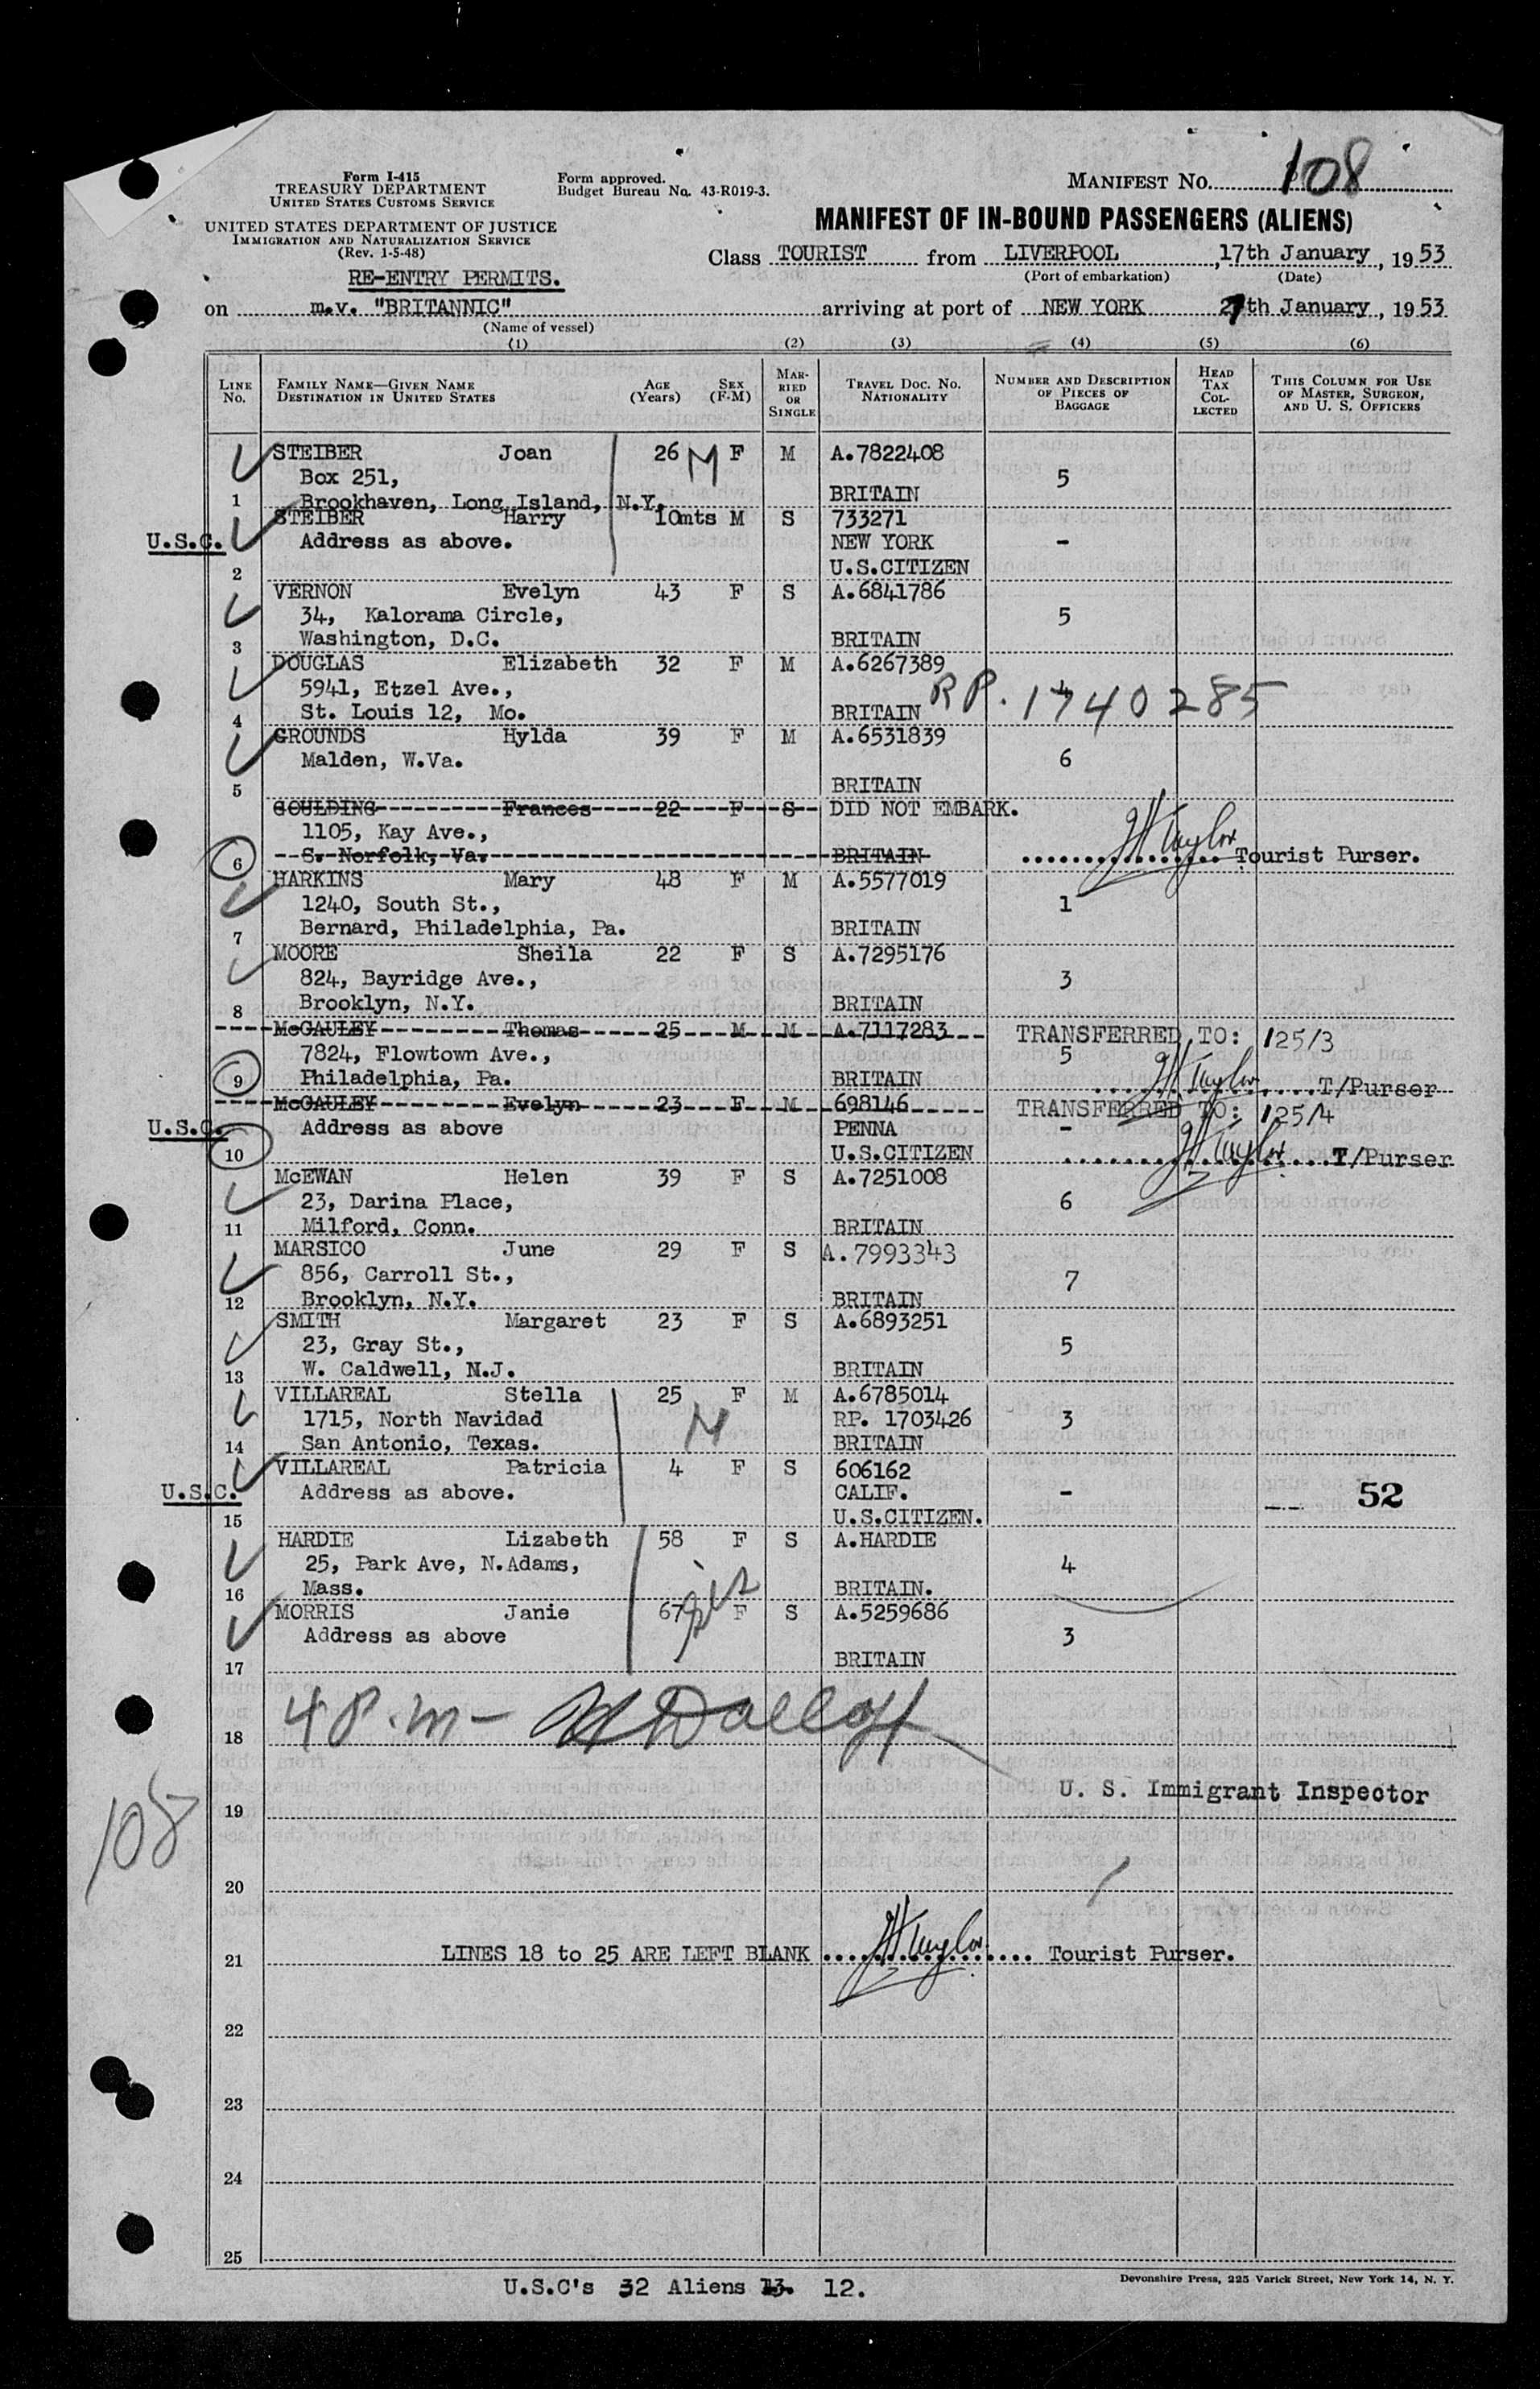 Form I-415
TREASURY DEPARTMENT
UNITED STATES CUSTOMS SERVICE
Form approved.
Budget Bureau No. 43-R019-3.
MANIFEST NO. 108
UNITED STATES DEPARTMENT OF JUSTICE
IMMIGRATION AND NATURALIZATION SERVICE
(Rev. 1-5-48)
MANIFEST OF IN-BOUND PASSENGERS (ALIENS)
Class TOURIST from LIVERPOOL, 17th January, 1953
(Port of embarkation) (Date)
RE-ENTRY PERMITS.
on m.v. "BRITANNIC" arriving at port of NEW YORK 27th January, 1953
(Name of vessel)
(1) (2) (3) (4) (5) (6)
LINE NO. FAMILY NAME—GIVEN NAME DESTINATION IN UNITED STATES AGE (Years) SEX (F-M) MARRIED OR SINGLE TRAVEL DOC. NO. NATIONALITY NUMBER AND DESCRIPTION OF PIECES OF BAGGAGE HEAD TAX COLLECTED THIS COLUMN FOR USE OF MASTER, SURGEON, AND U. S. OFFICERS
STEIBER Joan 26 M F M A.7822408
Box 251, 5
1 Brookhaven, Long Island, N.Y. BRITAIN
STEIBER Harry 10mts M S 733271
U.S.C. Address as above. NEW YORK -
2 U.S.CITIZEN
VERNON Evelyn 43 F S A.6841786
34, Kalorama Circle, 5
3 Washington, D.C. BRITAIN
DOUGLAS Elizabeth 32 F M A.6267389
5941, Etzel Ave., RP. 1740285
4 St. Louis 12, Mo. BRITAIN
GROUNDS Hylda 39 F M A.6531839
Malden, W.Va. 6
5 BRITAIN
GOULDING Frances 22 F S DID NOT EMBARK.
1105, Kay Ave.,
6 S. Norfolk, Va. BRITAIN JH Taylor Tourist Purser.
HARKINS Mary 48 F M A.5577019
1240, South St., 1
7 Bernard, Philadelphia, Pa. BRITAIN
MOORE Sheila 22 F S A.7295176
824, Bayridge Ave., 3
8 Brooklyn, N.Y. BRITAIN
McGAULEY Thomas 25 M M A.7117283 TRANSFERRED TO: 125/3
7824, Flowtown Ave., 5
9 Philadelphia, Pa. BRITAIN JH Taylor T/Purser
McGAULEY Evelyn 23 F M 698146 TRANSFERRED TO: 125/4
U.S.C. Address as above PENNA -
10 U.S.CITIZEN JH Taylor T/Purser
McEWAN Helen 39 F S A.7251008
23, Darina Place, 6
11 Milford, Conn. BRITAIN
MARSICO June 29 F S A.7993343
856, Carroll St., 7
12 Brooklyn, N.Y. BRITAIN
SMITH Margaret 23 F S A.6893251
23, Gray St., 5
13 W. Caldwell, N.J. BRITAIN
VILLAREAL Stella 25 F M A.6785014
1715, North Navidad M RP. 1703426 3
14 San Antonio, Texas. BRITAIN
VILLAREAL Patricia 4 F S 606162
U.S.C. Address as above. CALIF. - 52
15 U.S.CITIZEN.
HARDIE Lizabeth 58 F S A.HARDIE
25, Park Ave, N.Adams, 4
16 Mass. BRITAIN.
MORRIS Janie 67 F S A.5259686
Address as above 3
17 BRITAIN
4 P.m—
18
U. S. Immigrant Inspector
19
108
20
21 LINES 18 to 25 ARE LEFT BLANK JH Taylor Tourist Purser.
22
23
24
25
U.S.C's 32 Aliens 13. 12.
Devonshire Press, 225 Varick Street, New York 14, N. Y.